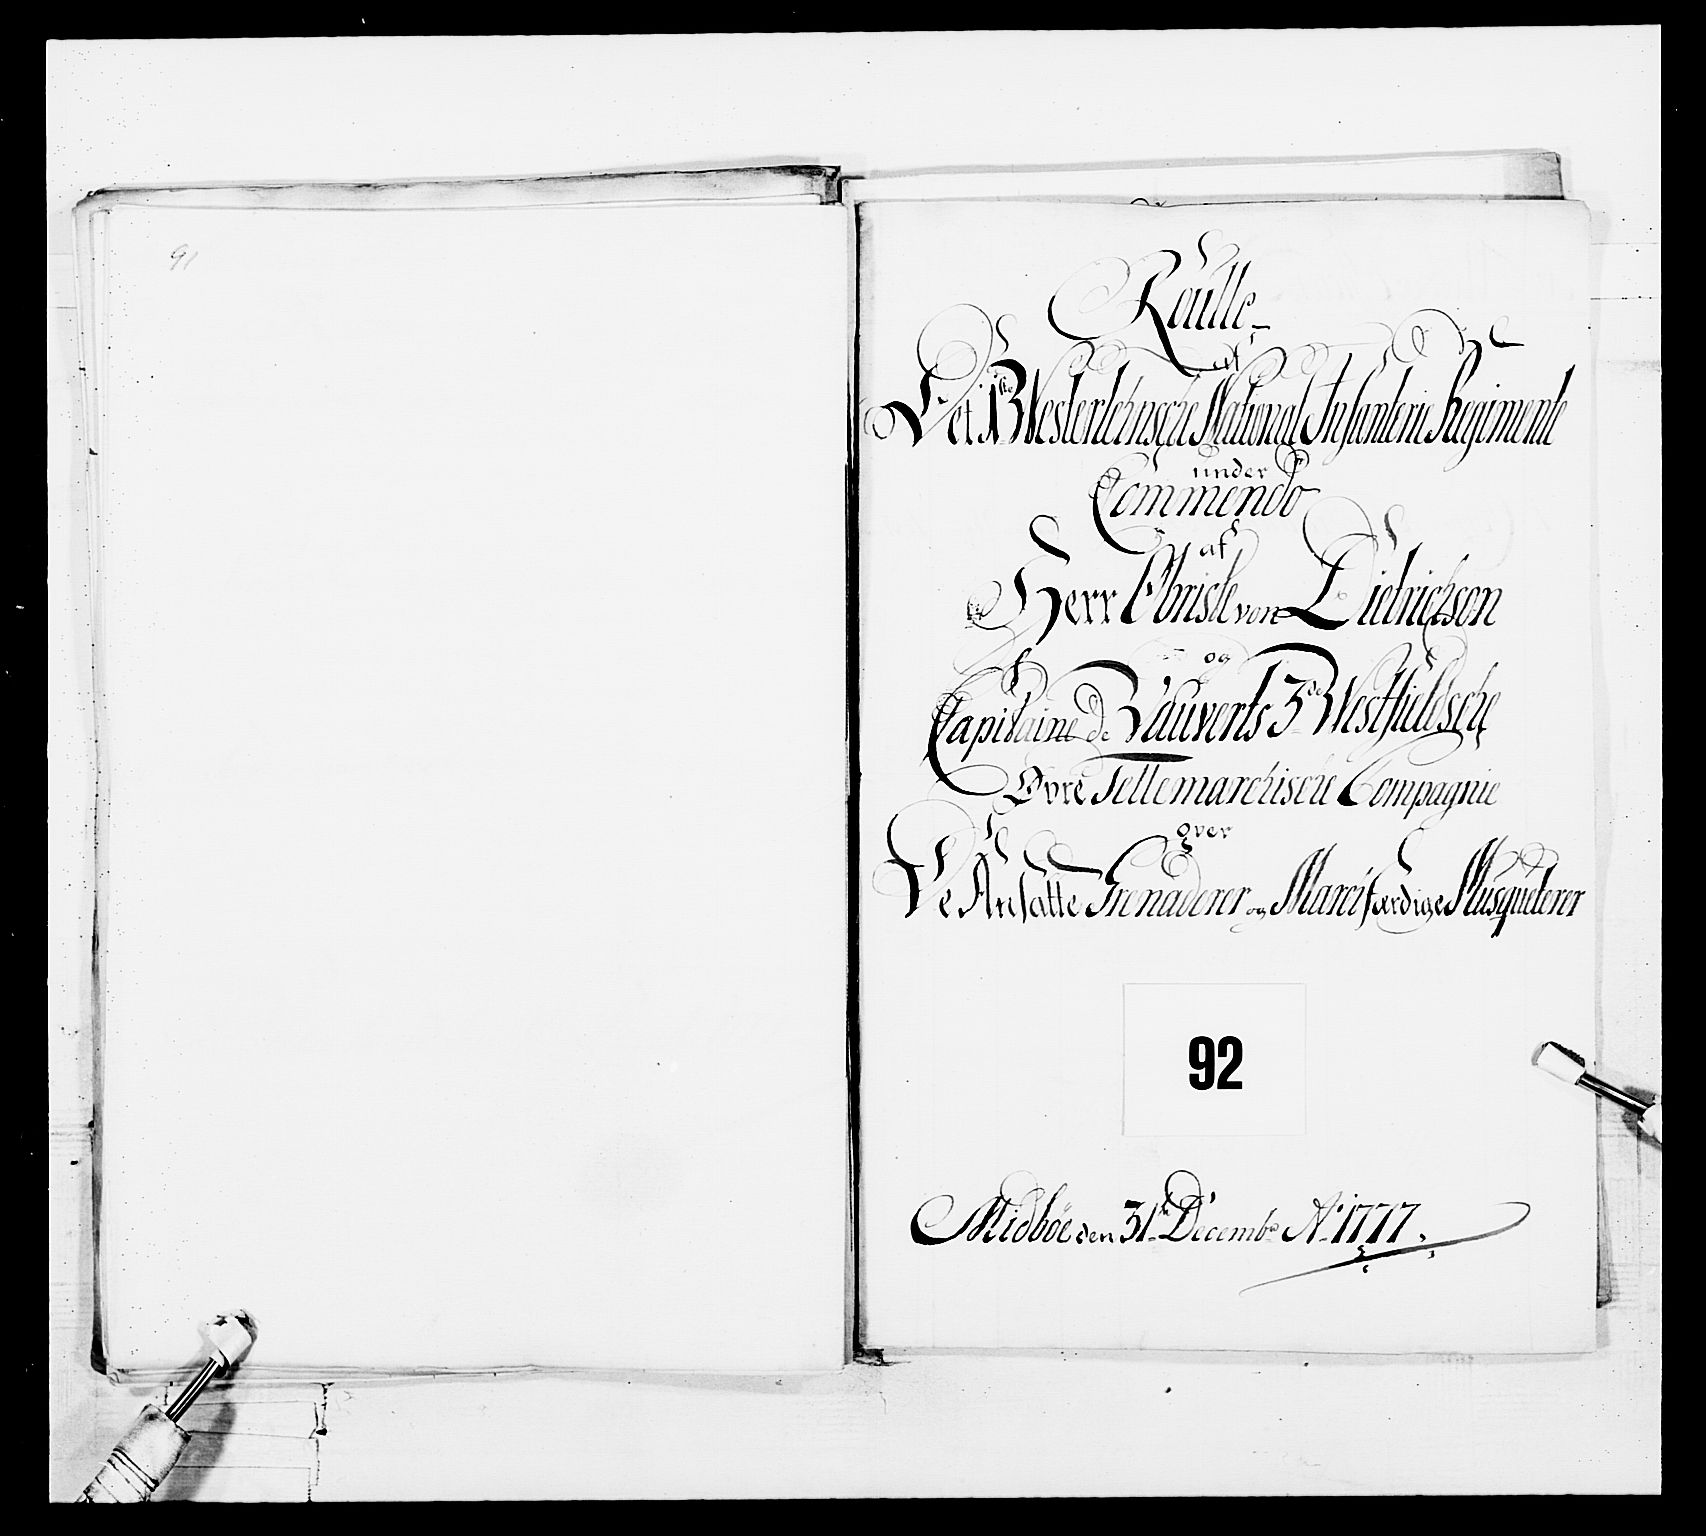 91
Roulle
af
Det 1ste Westerlehnsche National Infanterie Regimente
under
Commendo
af
Herr Obriste von Dietrichson
og
Capitaine de Vauverts 3de Westfieldsche
Øvre Tellemarchische Compagnie
over
De Ansatte Grenaderer og Marchfærdige Musqueterer
92
Midböe den 31te Decembr Ao 1777